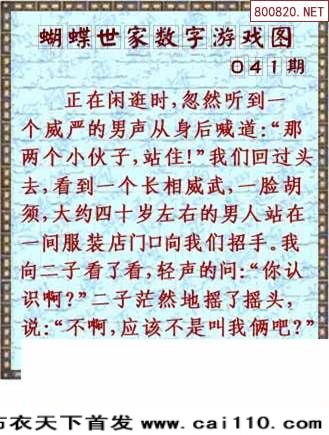 800820.NET
蝴蝶世家数字游戏图
041期
正在闲逛时,忽然听到一
个威严的男声从身后喊道:“那
两个小伙子,站住!”我们回过头
去,看到一个长相威武,一脸胡
须,大约四十岁左右的男人站在
一间服装店门口向我们招手。我
向二子看了看,轻声的问:“你认
识啊?”二子茫然地摇了摇头,
说:“不啊,应该不是叫我俩吧?”
衣天下首发 www.cai110.com